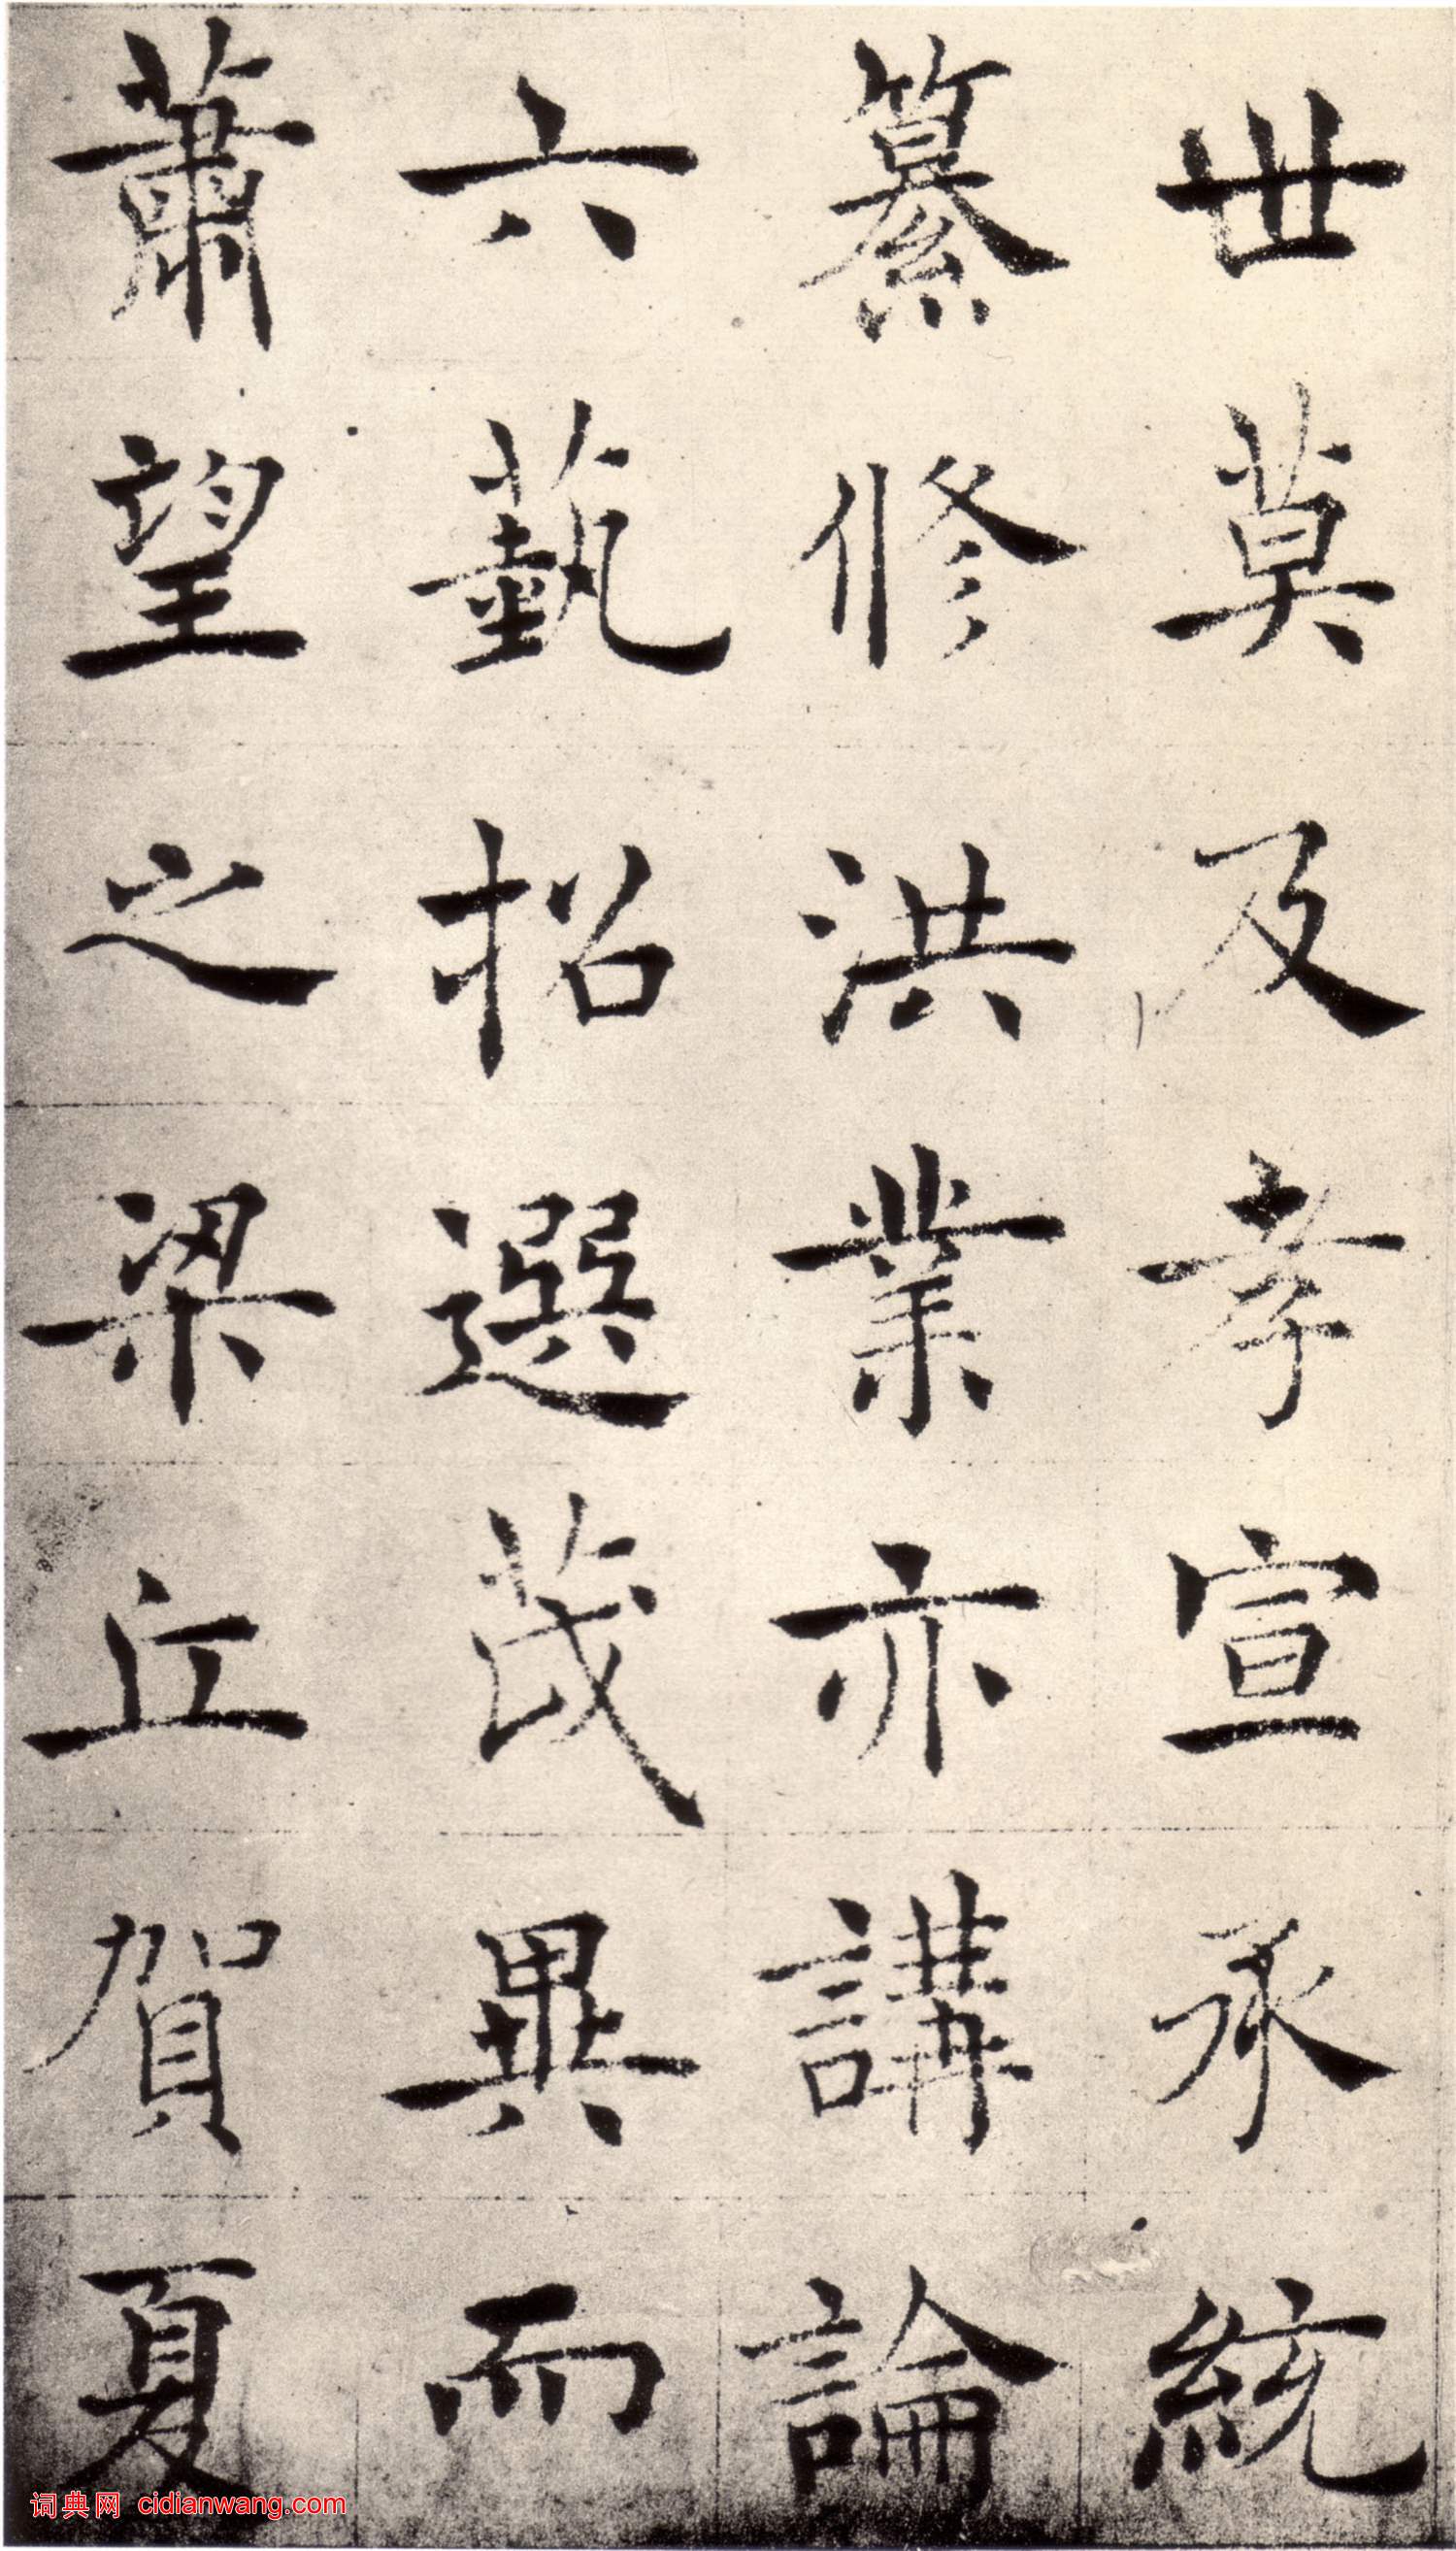 世莫及孝宣承統
纂修洪業亦講論
六藝招選茂異而
蕭望之梁丘賀夏
词典网 cidianwang.com